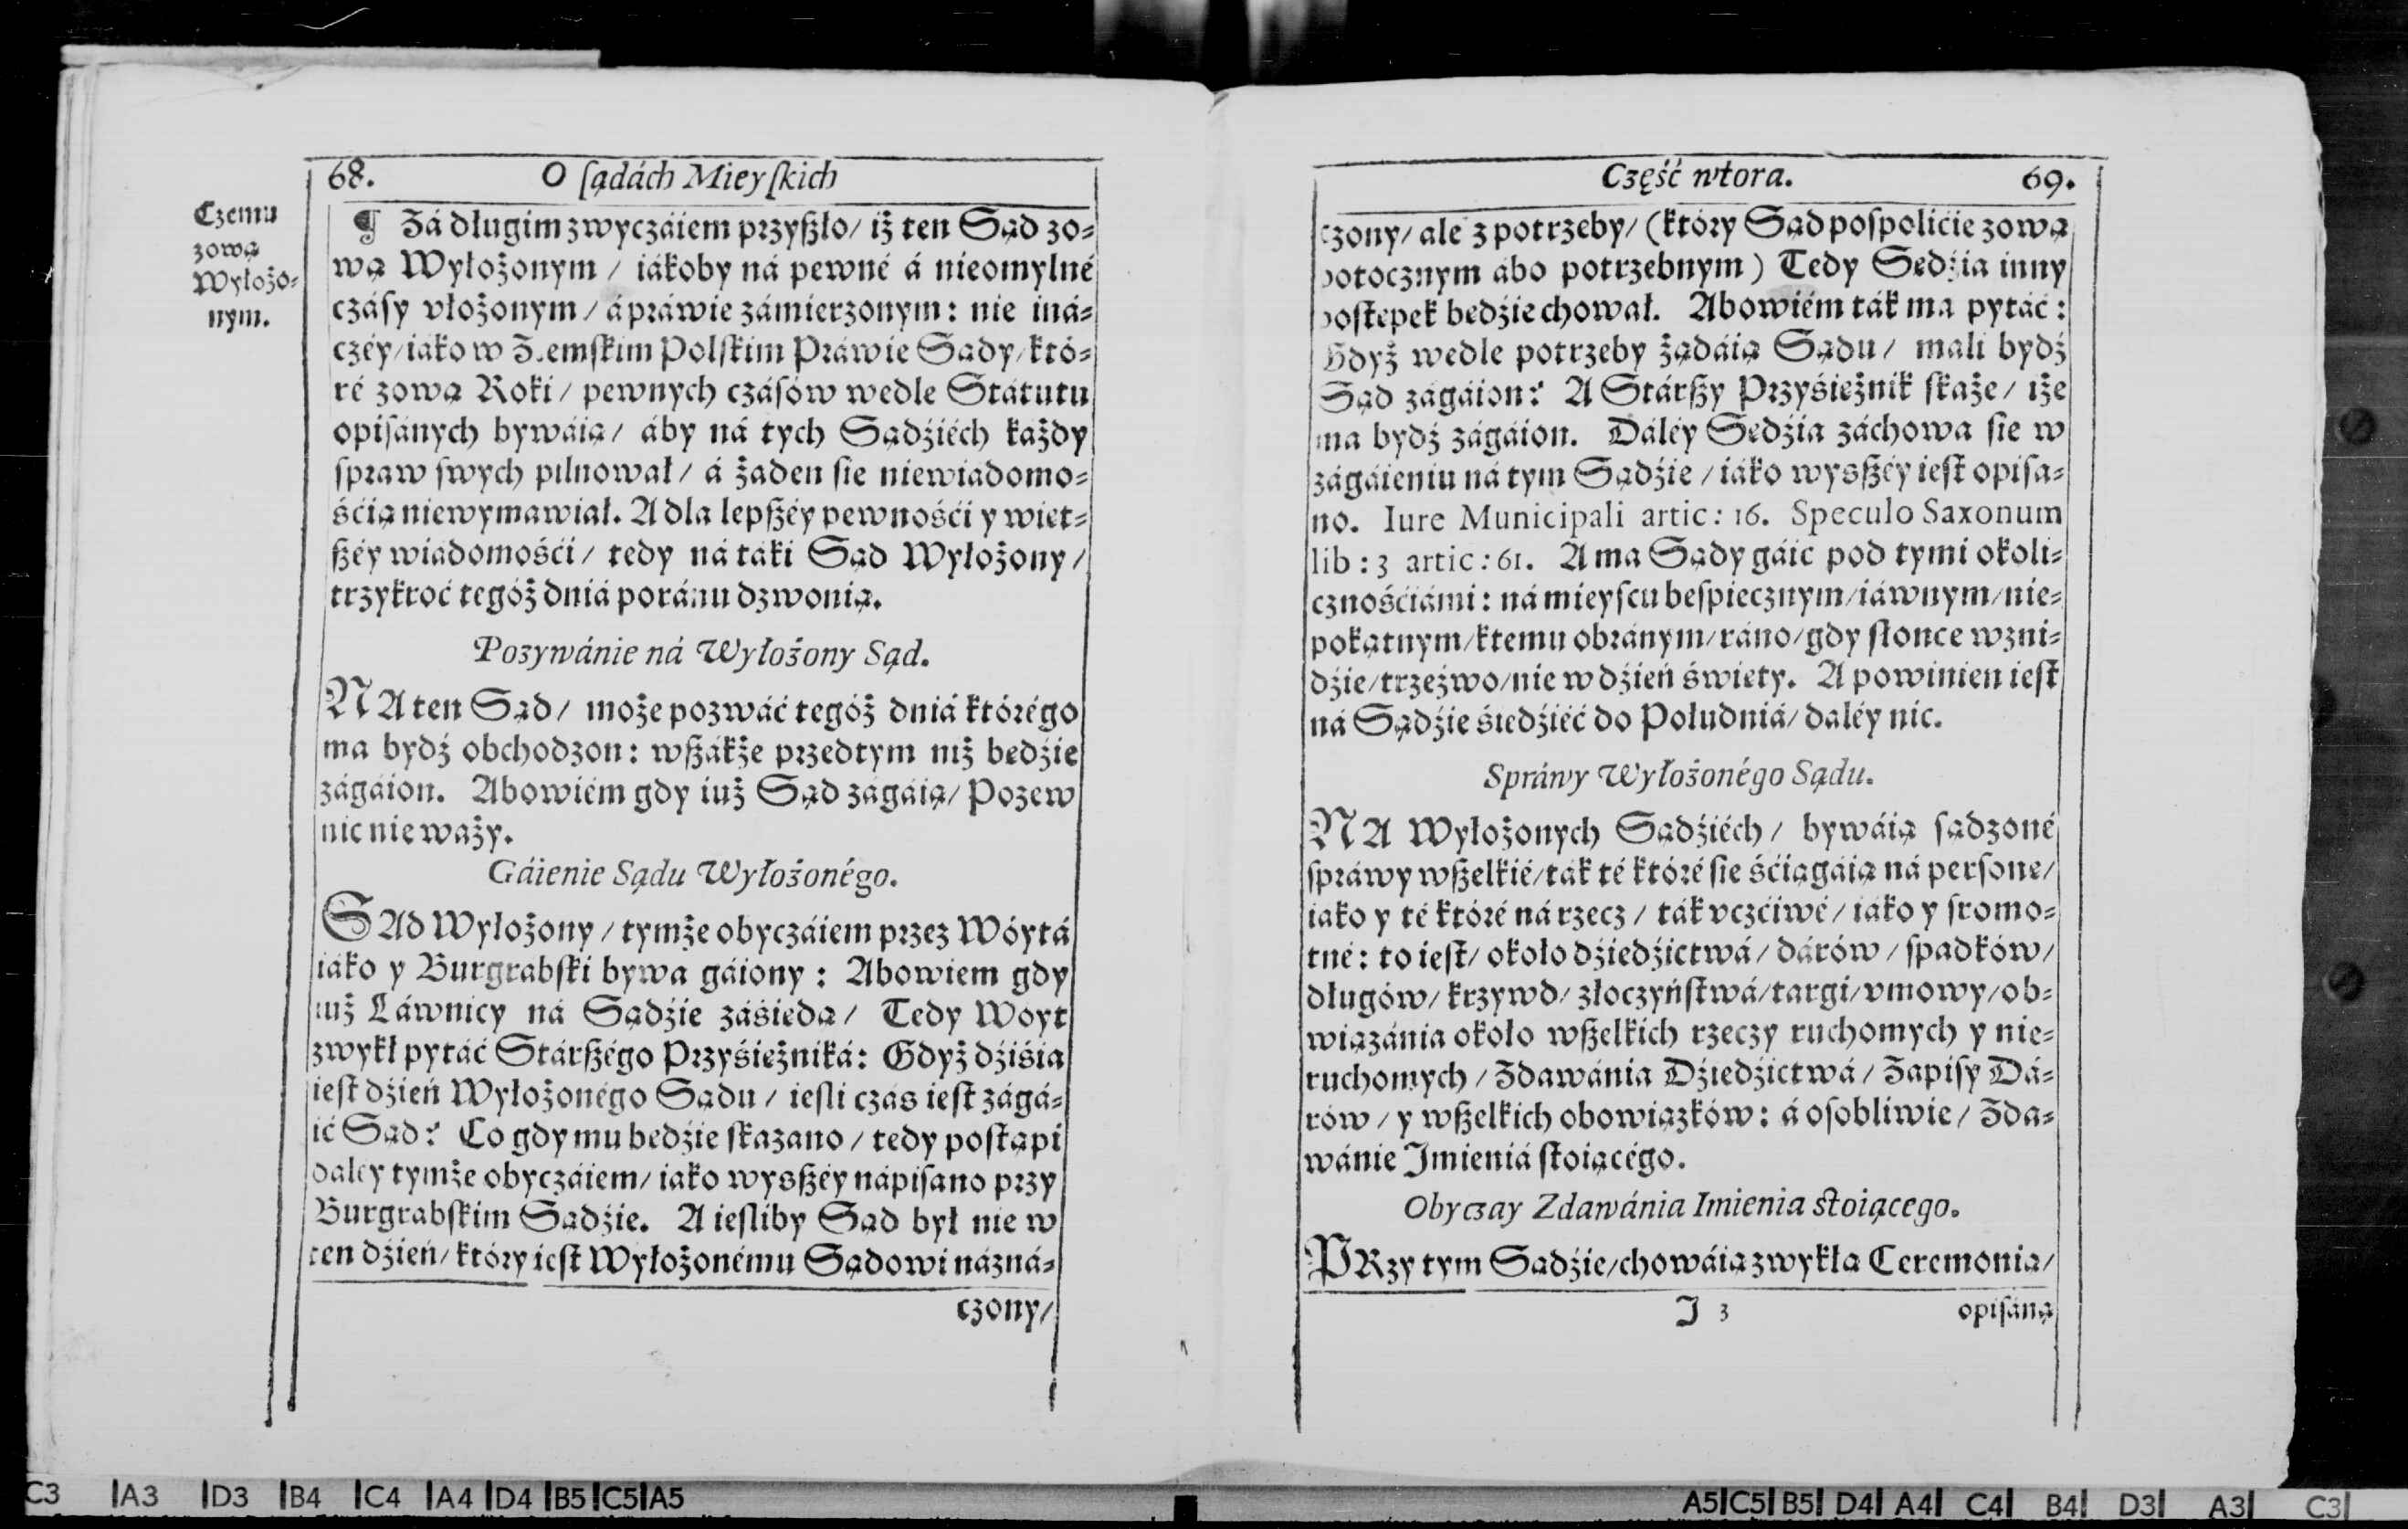 68. O ſądách Mieyſkich
Czemu
zową
Wyłożo-
nym.
¶ Zá długim zwyczáiem przyßło/ iż ten Sąd zo-
wą Wyłożonym / iákoby ná pewné á nieomylné
czáſy vłożonym/ á práwie zámierzonym: nie iná-
czéy/ iáko w Ziemſkim Polſkim Práwie Sądy/ któ-
ré zową Roki/ pewnych czáſów wedle Státutu
opiſánych bywáią/ áby ná tych Sądźiéch każdy
ſpraw ſwych pilnował/ á żaden ſie niewiadomo-
śćią niewymawiał. A dla lepßéy pewnośći y wiet-
ßéy wiadomośći/ tedy ná táki Sąd Wyłożony/
trzykroć tegóż dniá poránu dzwonią.
Pozywánie ná Wyłożony Sąd.
NA ten Sąd/ może pozwáć tegóż dniá którégo
ma bydź obchodzon: wßákże przedtym niż bedźie
zágáion. Abowiém gdy iuż Sąd zágáią/ Pozew
nic nie waży.
Gáienie Sądu Wyłożonégo.
SAd Wyłożony/ tymże obyczáiem przez Wóytá
iáko y Burgrabſki bywa gáiony: Abowiem gdy
iuż Láwnicy ná Sądźie záśiedą/ Tedy Woyt
zwykł pytáć Stárßégo Przyśiężniká: Gdyż dźiśia
ieſt dźień Wyłożonégo Sądu/ ieſli czás ieſt zágá-
ić Sąd? Co gdy mu bedźie ſkazano/ tedy poſtąpi
daléy tymże obyczáiem/ iáko wyżßéy nápiſano przy
Burgrabſkim Sądźie. A ieſliby Sąd był nie w
ten dźień/ który ieſt Wyłożonému Sądowi názná-
czony/
Część wtora. 69.
czony/ ale z potrzeby/ (który Sąd poſpolićie zową
potocznym ábo potrzebnym) Tedy Sędźia inny
poſtępek bedźie chował. Abowiém ták ma pytáć:
Gdyż wedle potrzeby żądáią Sądu/ mali bydź
Sąd zágáion? A Stárßy Przyśiężnik ſkaże/ iże
ma bydź zágáion. Daléy Sędźia záchowa ſie w
zágáieniu ná tym Sądźie/ iáko wysßéy ieſt opiſa-
no. Iure Municipali artic: 16. Speculo Saxonum
lib: 3 artic: 61. A ma Sądy gáić pod tymi okoli-
cznośćiámi: ná mieyſcu beſpiecznym/ iáwnym/ nie-
pokątnym/ ktemu obránym/ ráno/ gdy słonce wzni-
dźie/ trzeźwo/ nie w dźień święty. A powinien ieſt
ná Sądźie śiedźiéć do Południá/ daléy nic.
Spráwy Wyłożonégo Sądu.
NA Wyłożonych Sądźiéch/ bywáią ſądzoné
ſpráwy wßelkié/ ták té któré ſie śćiągáią ná perſonę/
iáko y té któré ná rzecz/ ták vczćiwé/ iáko y ſromo-
tné: to ieſt/ około dźiedźictwá/ dárów/ ſpadków/
długów/ krzywd/ złoczyńſtwá/ targi/ vmowy/ ob-
wiązánia około wßelkich rzeczy ruchomych y nie-
ruchomych/ Zdawánia Dźiedźictwá/ Zapiſy Dá-
rów/ y wßelkich obowiązków: á oſobliwie/ Zda-
wánie Imieniá ſtoiącégo.
Obyczay Zdawánia Imienia ſtoiącego.
PRzy tym Sądźie/ chowáią zwykłą Ceremonią/
I 3 opiſáną
C3 A3 D3 B4 C4 A4 D4 B5 C5 A5
A5 C5 B5 D4 A4 C4 B4 D3 A3 C3